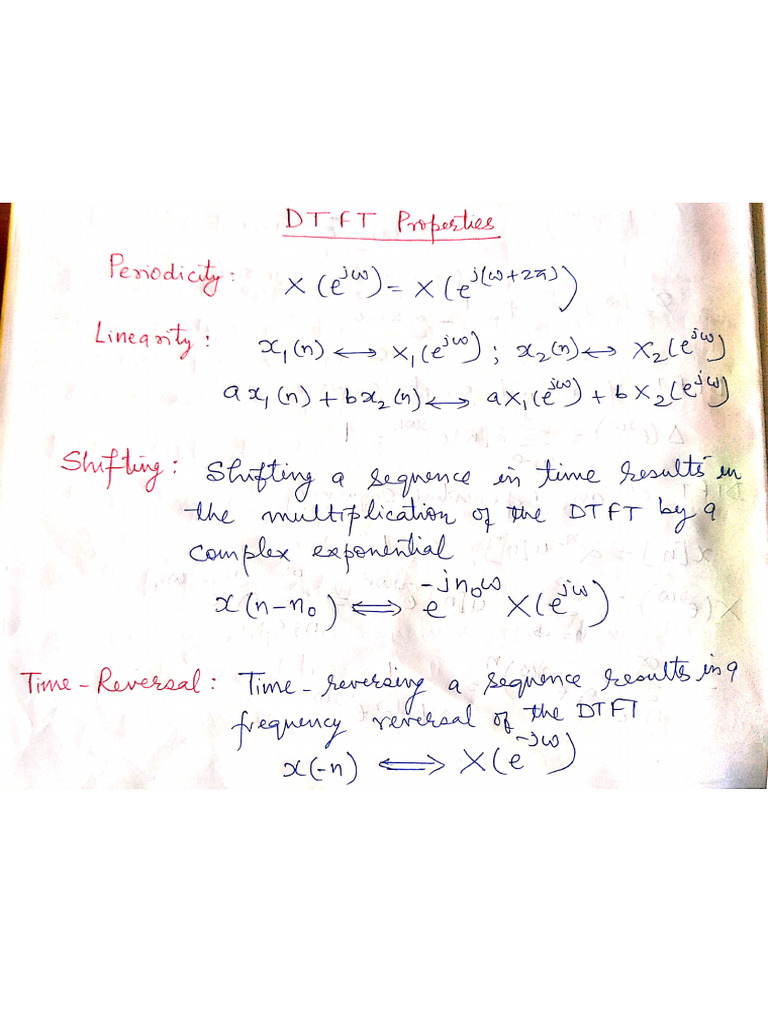 DTFT Properties
Periodicity: X(e^{jω}) = X(e^{j(ω+2π)})
Linearity: x₁(n) ↔ X₁(e^{jω}) ; x₂(n) ↔ X₂(e^{jω})
a x₁(n) + b x₂(n) ↔ a X₁(e^{jω}) + b X₂(e^{jω})
Shifting: Shifting a sequence in time results in
the multiplication of the DTFT by a
complex exponential
x(n-n₀) ⇔ e^{-jn₀ω} X(e^{jω})
Time-Reversal: Time-reversing a sequence results in a
frequency reversal of the DTFT
x(-n) ⇔ X(e^{-jω})